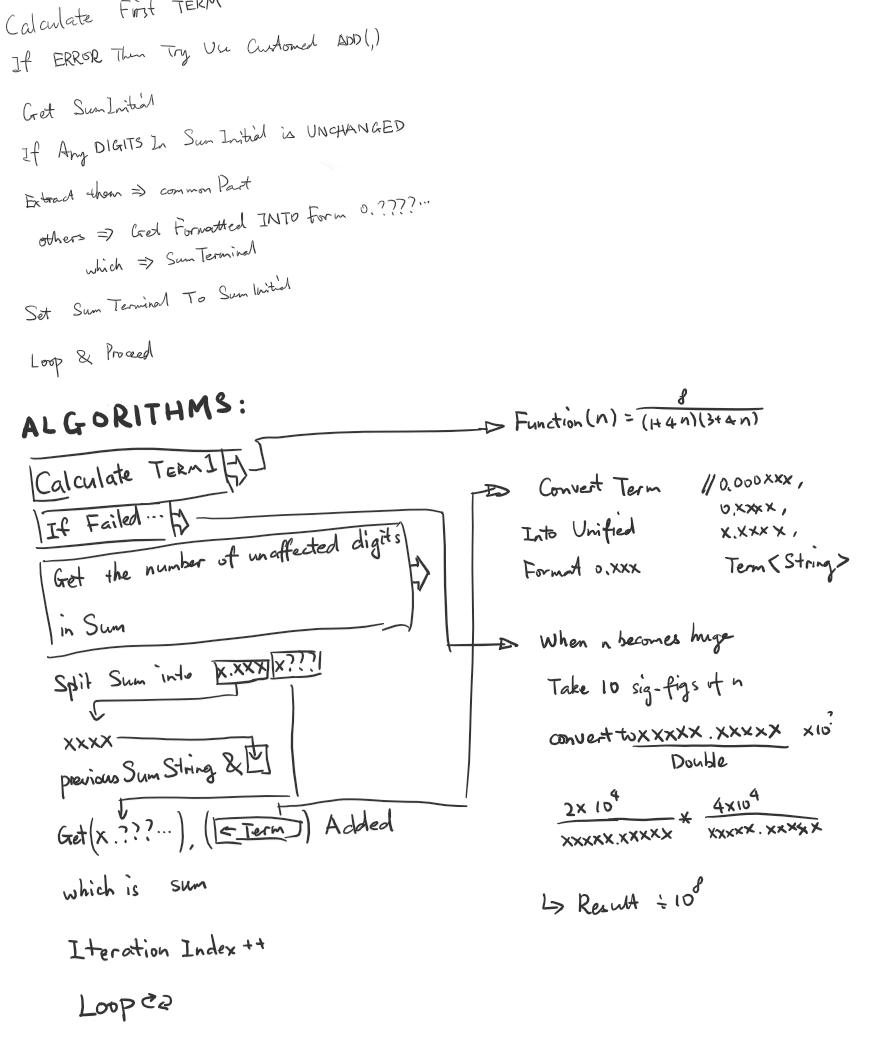 Calculate First TERM
If ERROR Then Try Use Customed ADD(,)
Get SumInitial
If Any DIGITS In Sum Initial is UNCHANGED
Extract them ⇒ common Part
others ⇒ Get Formatted INTO Form 0.????...
which ⇒ SumTerminal
Set Sum Terminal To Sum Initial
Loop & Proceed
ALGORITHMS:
Calculate TERM1
If Failed...
Get the number of unaffected digits
in Sum
Split Sum into x.xxx x???
xxxx
previous Sum String &
Get(x.???...), (← Term) Added
which is sum
Iteration Index ++
Loop
Function(n) = 8/(1+4n)(3+4n)
Convert Term //0.000xxx,
0.xxxx,
Into Unified x.xxxx,
Format 0.xxx Term<String>
When n becomes huge
Take 10 sig-figs of n
convert to xxxxx.xxxxx x10^?
Double
2x10^4/xxxxx.xxxxx * 4x10^4/xxxxx.xxxxx
↳ Result ÷ 10^8